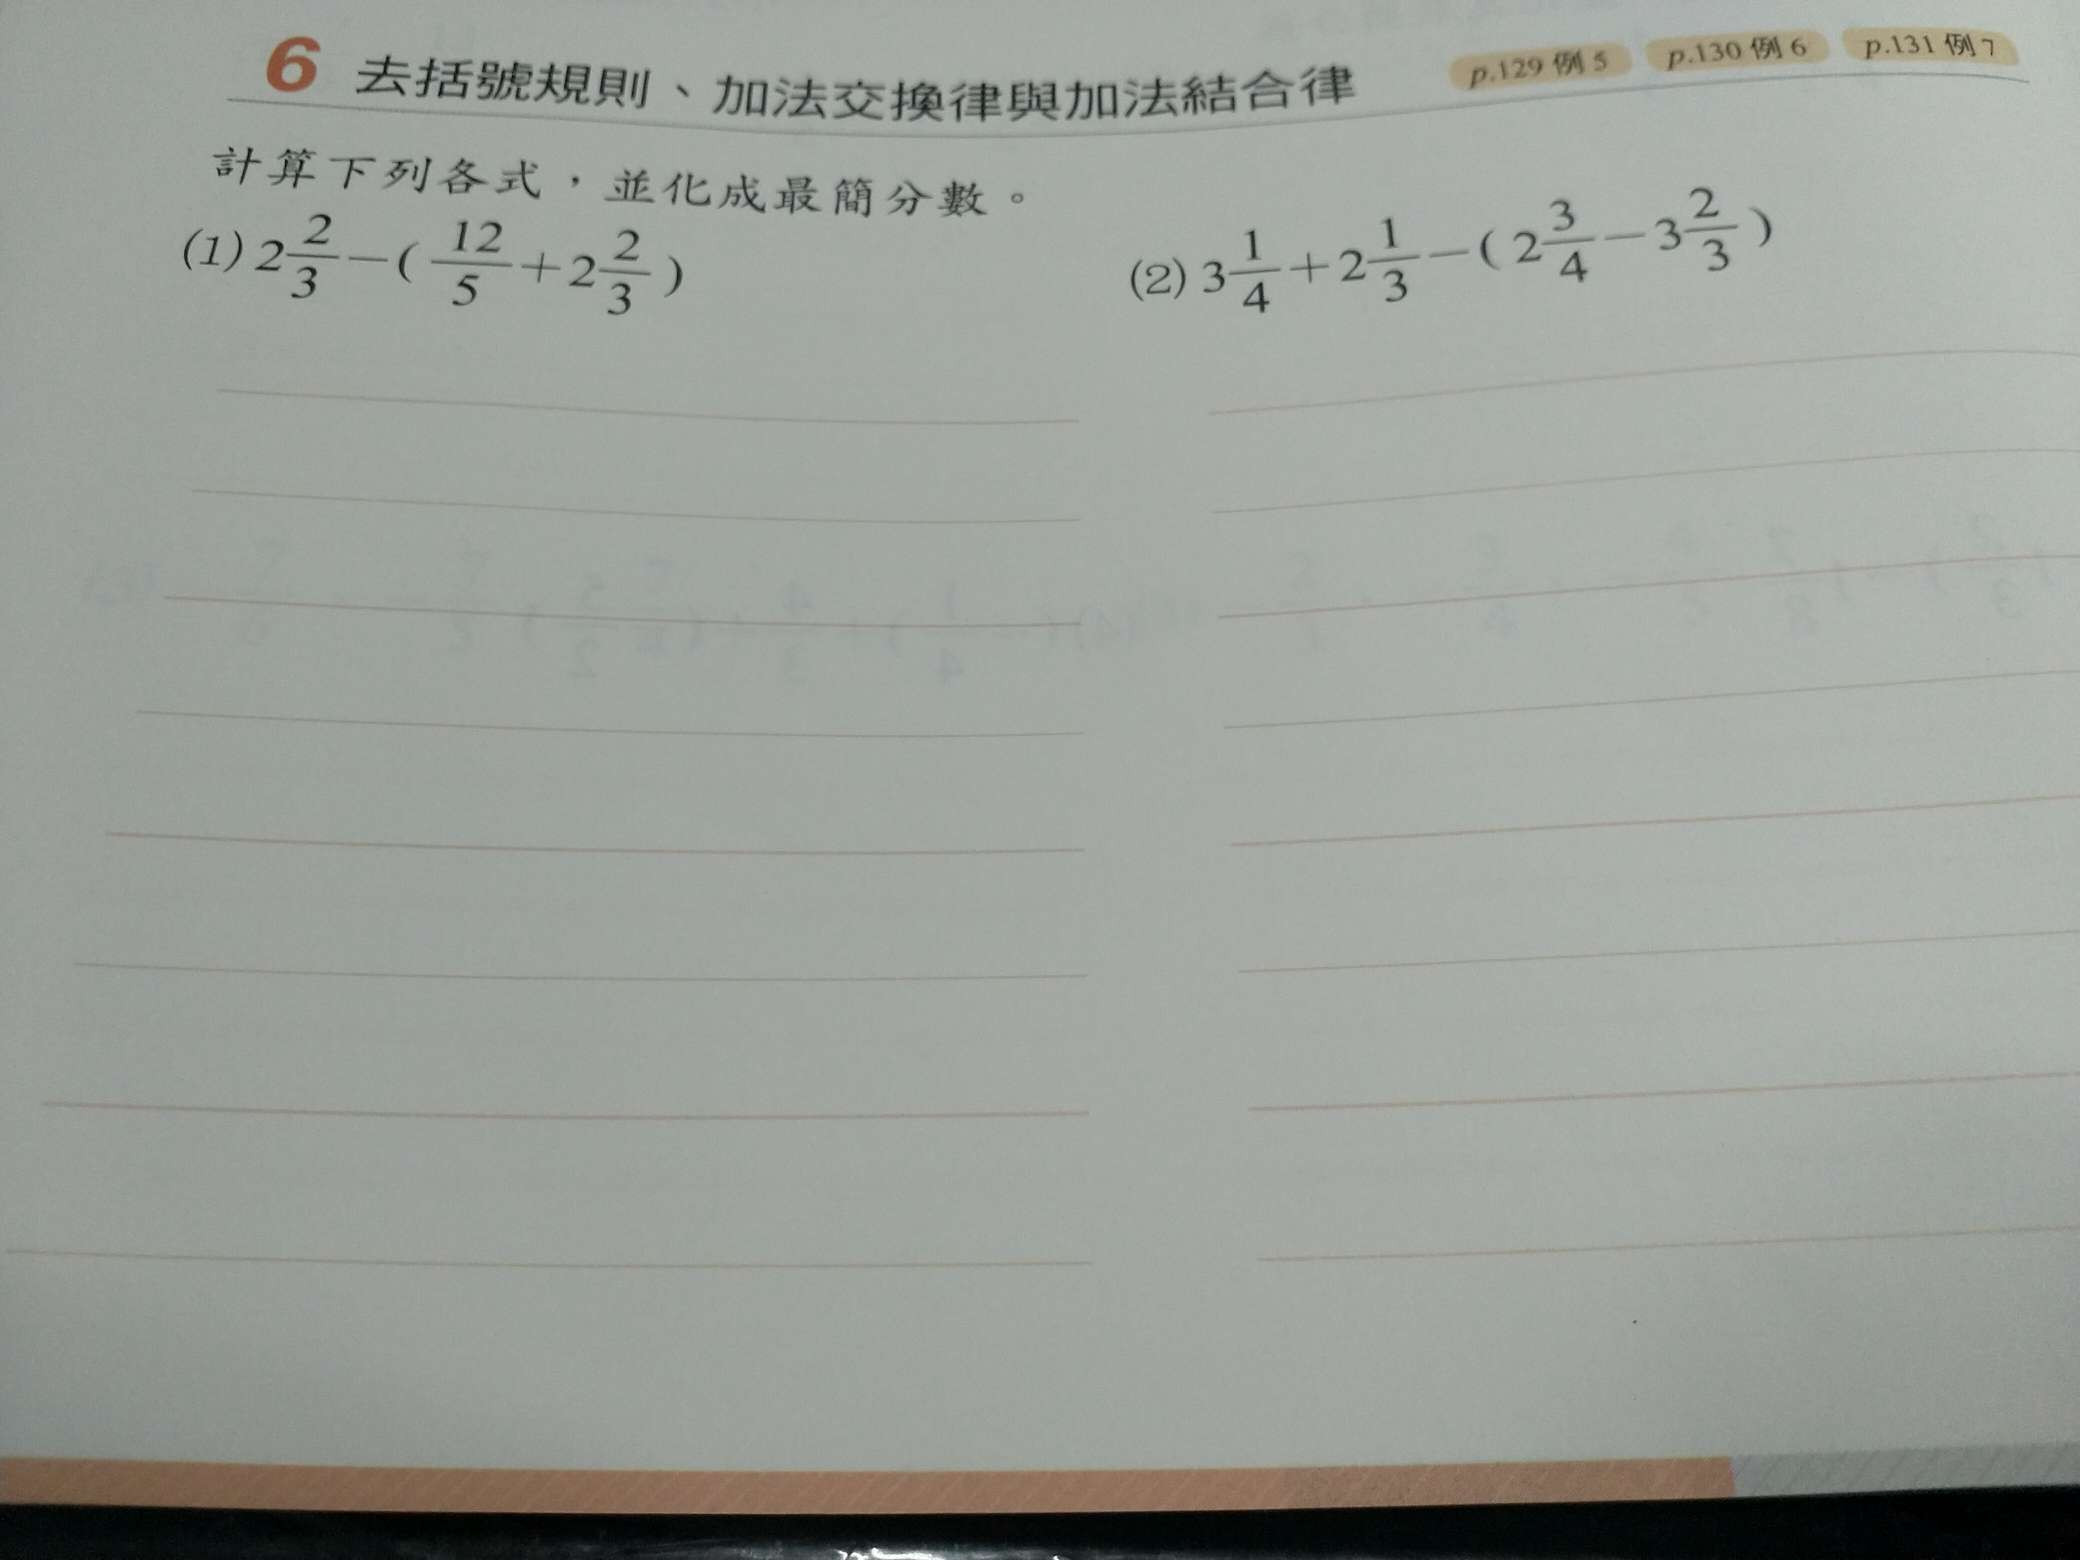 6 去括號規則、加法交換律與加法結合律 p.129 例 5 p.130 例 6 p.131 例 7
計算下列各式，並化成最簡分數。
(1) 2 2/3 －( 12/5 ＋2 2/3 )
(2) 3 1/4 ＋2 1/3 －( 2 3/4 －3 2/3 )